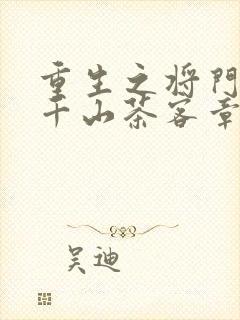 重生之将门
千山茶客章
吴迪